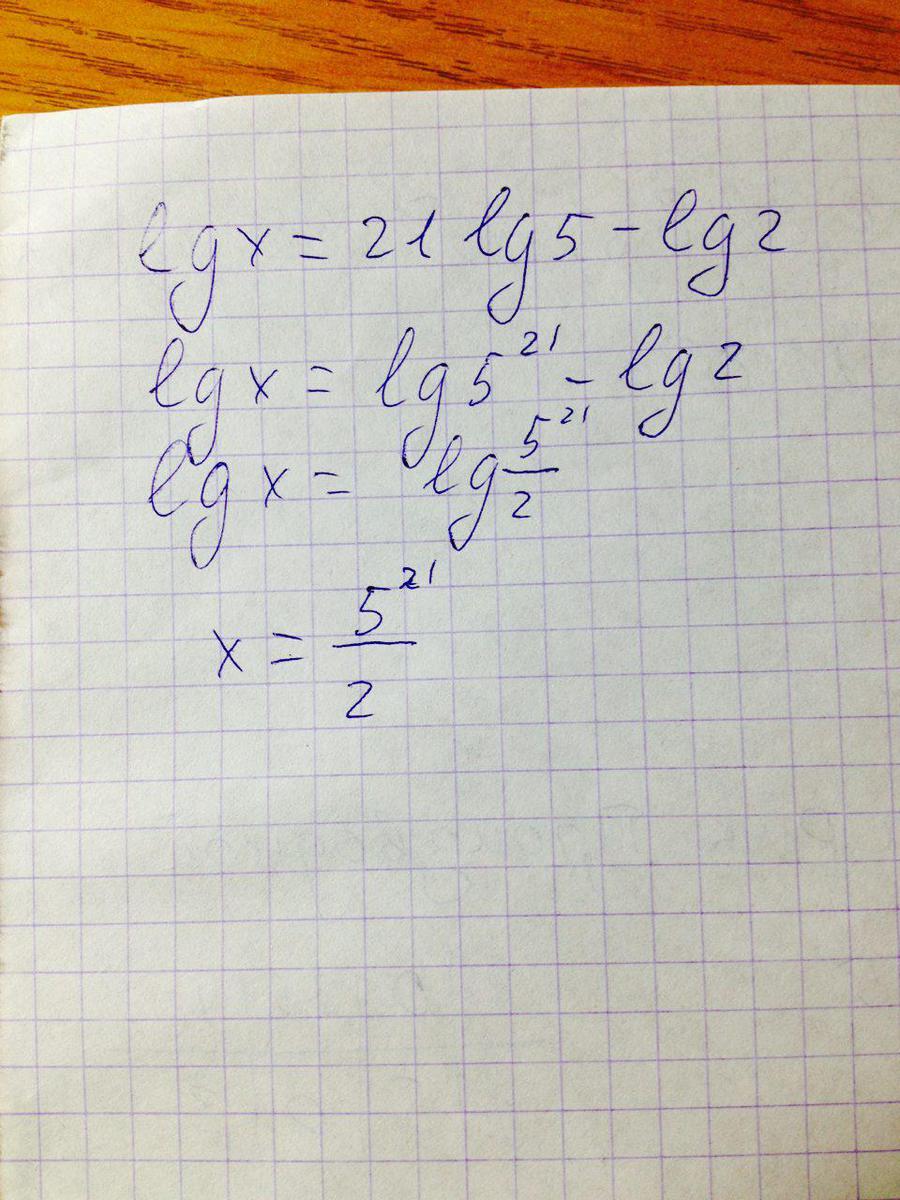 lg x = 21 lg 5 - lg 2
lg x = lg 5^21 - lg 2
lg x = lg 5^21/2
x = 5^21/2